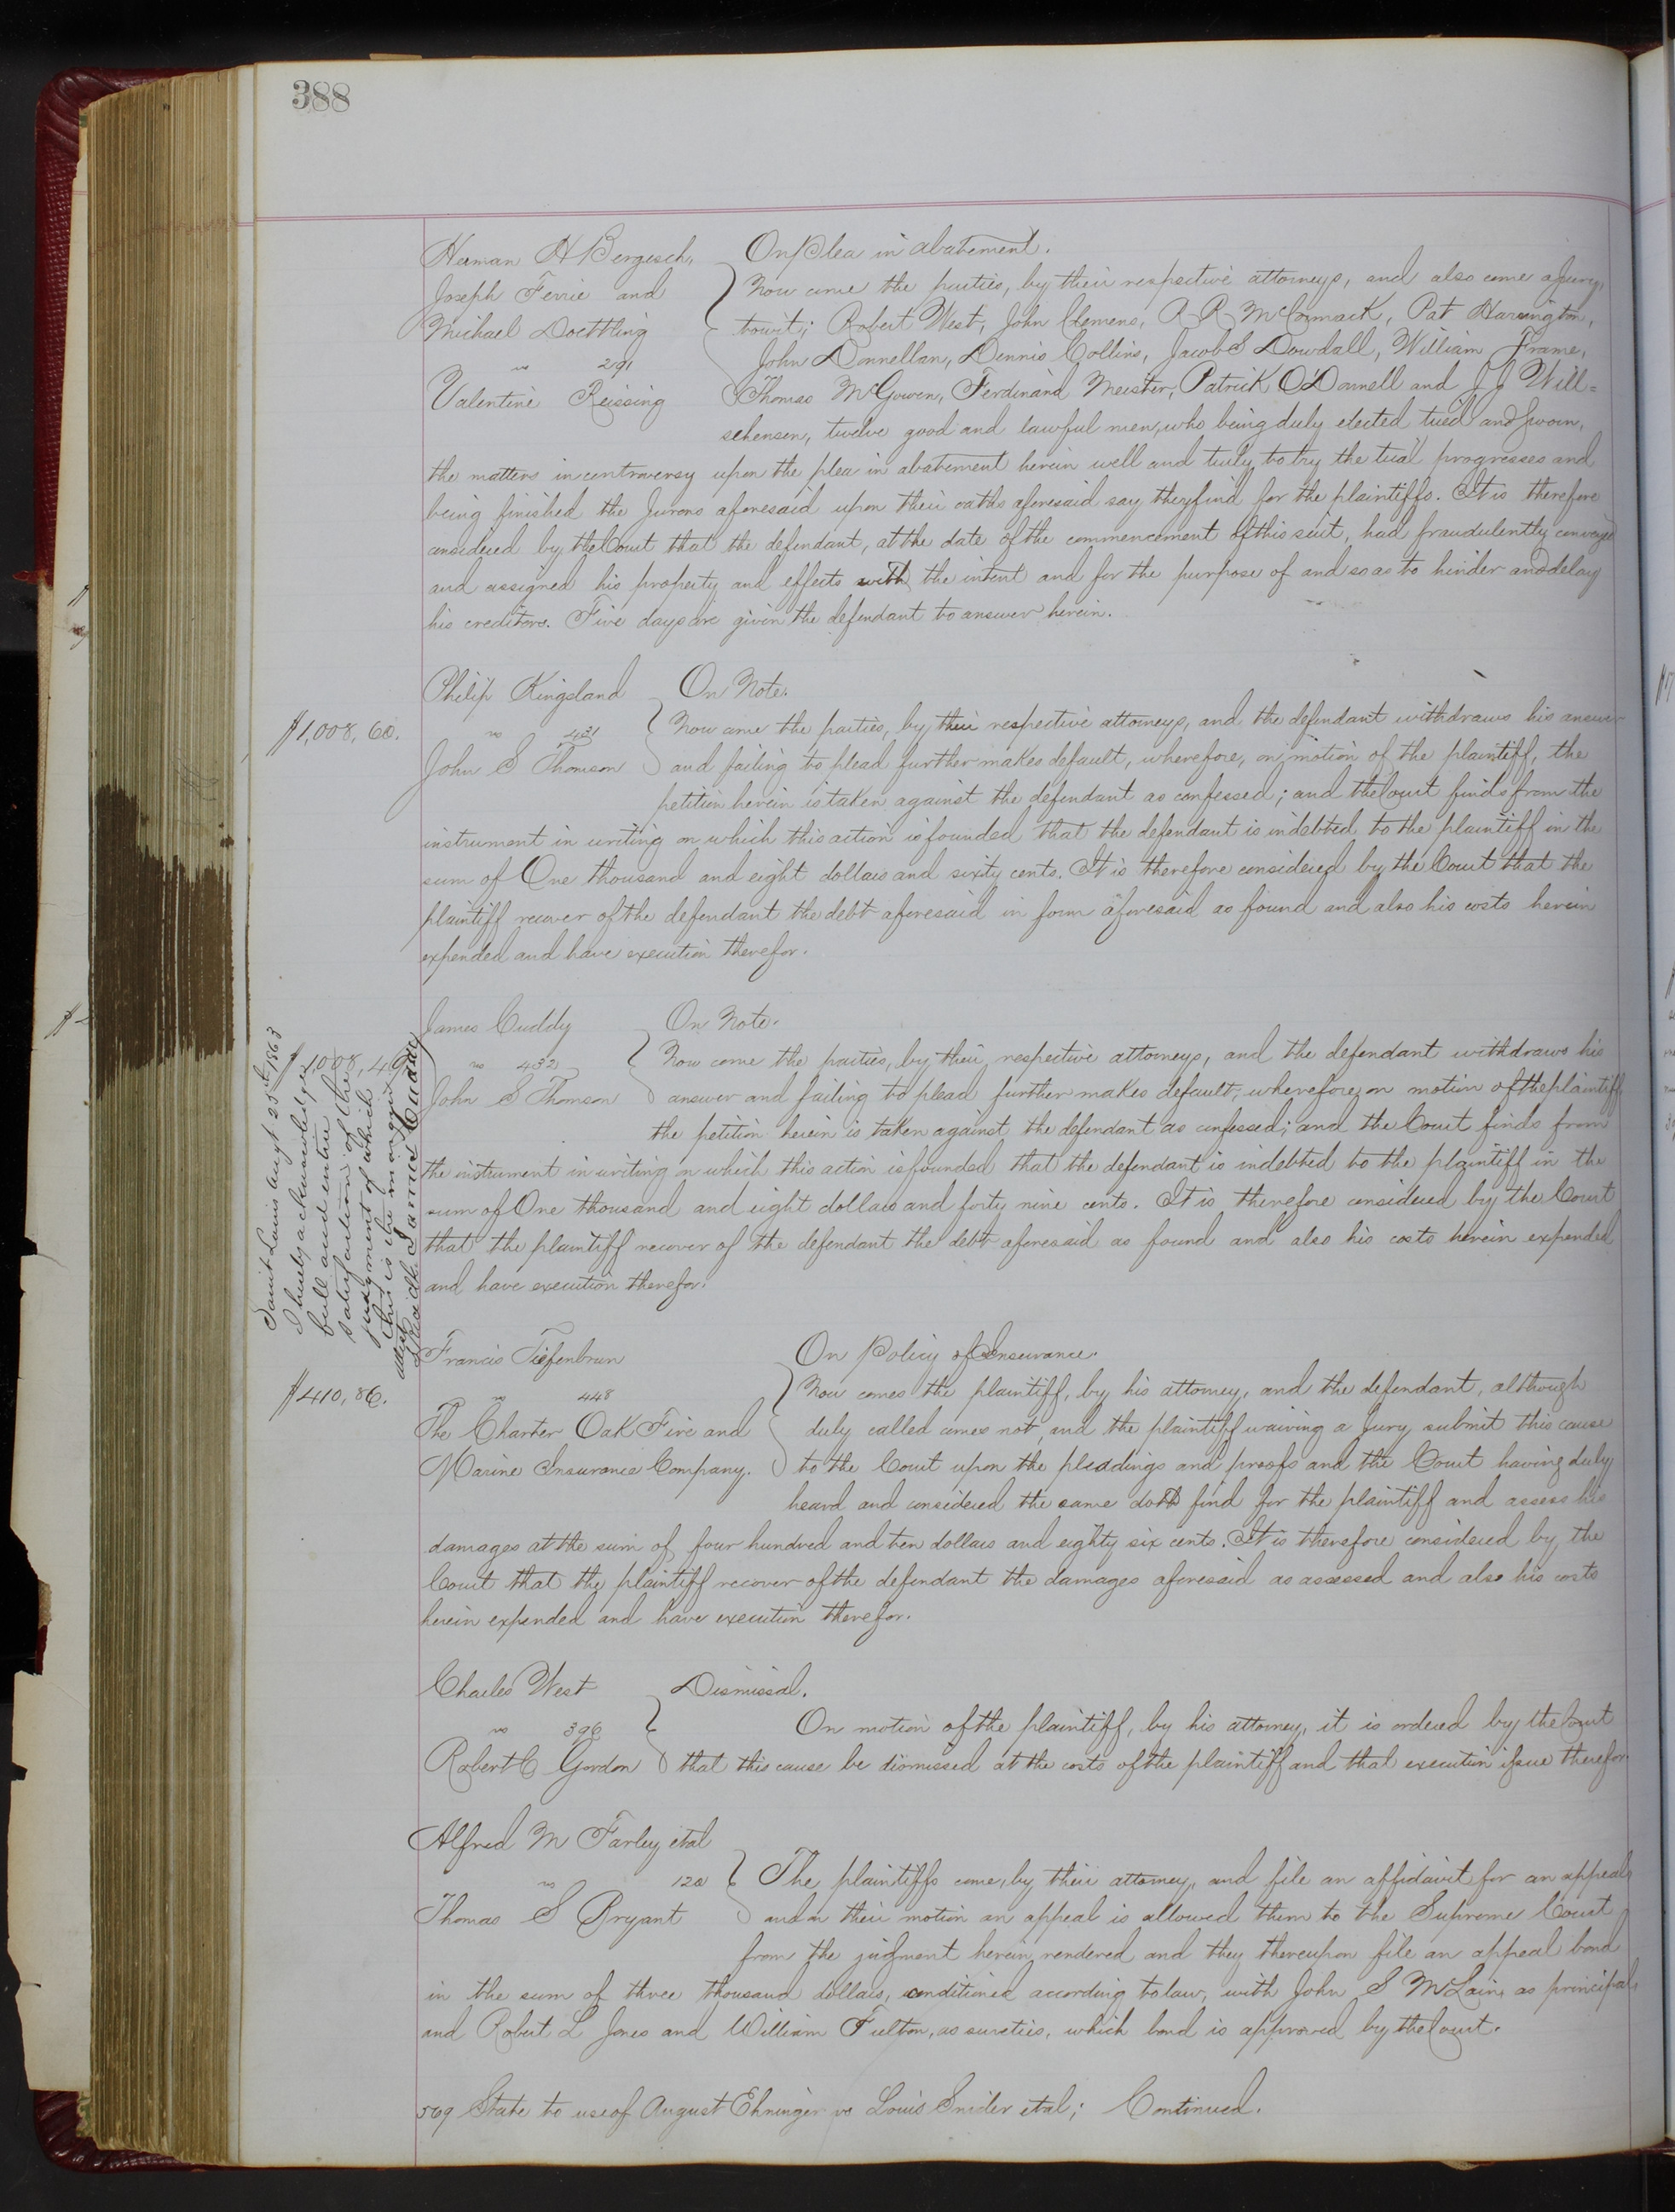 388
Herman H Bergesch,
Joseph Ferrie and
Michael Doettling
vs 291
Valentine Reissing
On Plea in abatement.
Now come the parties, by their respective attorneys, and also come a jury,
towit; Robert West, John Clemens, R R McCormack, Pat Harrington,
John Donnellan, Dennis Collins, Jacob S Dowdall, William Frame,
Thomas McGowen, Ferdinand Meister, Patrick O'Donnell and J J Will=
schensen, twelve good and lawful men, who being duly elected tried and sworn,
the matters in controversy upon the plea in abatement herein well and truly to try the trial progresses and
being finished the Jurors aforesaid upon their oaths aforesaid say they find for the plaintiffs. It is therefore
considered by the Court that the defendant, at the date of the commencement of this suit, had fraudulently conveyed
and assigned his property and effects with the intent and for the purpose of and so as to hinder and delay
his creditors. Five days are given the defendant to answer herein.
$1,008,60.
Philip Kingsland
vs 431
John S Thomson
On Note.
Now come the parties, by their respective attorneys, and the defendant withdraws his answer
and failing to plead further makes default, wherefore, on motion of the plaintiff, the
petition herein is taken against the defendant as confessed; and the Court finds from the
instrument in writing on which this action is founded that the defendant is indebted to the plaintiff in the
sum of One thousand and eight dollars and sixty cents. It is therefore considered by the Court that the
plaintiff recover of the defendant the debt aforesaid in form aforesaid as found and also his costs herein
expended and have execution therefor.
$1,008,49
Saint Louis Augt 25th 1863
I hereby acknowledge
full and entire
satisfaction of the
judgment of which
this is the margin
James Cuddy
attest
James Cuddy
vs 432
John S Thomson
On Note.
Now come the parties, by their respective attorneys, and the defendant withdraws his
answer and failing to plead further makes default, wherefore, on motion of the plaintiff
the petition herein is taken against the defendant as confessed; and the Court finds from
the instrument in writing on which this action is founded that the defendant is indebted to the plaintiff in the
sum of One thousand and eight dollars and forty nine cents. It is therefore considered by the Court
that the plaintiff recover of the defendant the debt aforesaid as found and also his costs herein expended
and have execution therefor.
$410,86.
Francis Tiefenbrun
vs 448
The Charter Oak Fire and
Marine Insurance Company.
On Policy of Insurance.
Now comes the plaintiff, by his attorney, and the defendant, although
duly called comes not, and the plaintiff waiving a Jury submit this cause
to the Court upon the pleadings and proofs and the Court having duly
heard and considered the same doth find for the plaintiff and assess his
damages at the sum of four hundred and ten dollars and eighty six cents. It is therefore considered by the
Court that the plaintiff recover of the defendant the damages aforesaid as assessed and also his costs
herein expended and have execution therefor.
Charles West
vs 396
Robert C Gordon
Dismissal.
On motion of the plaintiff, by his attorney, it is ordered by the Court
that this cause be dismissed at the costs of the plaintiff and that execution issue therefor.
Alfred M Farley etal
vs 120
Thomas S Bryant
The plaintiffs come, by their attorney, and file an affidavit for an appeal
and on their motion an appeal is allowed them to the Supreme Court
from the judgment herein rendered and they thereupon file an appeal bond
in the sum of three thousand dollars, conditioned according to law, with John S McLain, as principal,
and Robert L Jones and William Fulton, as sureties, which bond is approved by the Court.
569 State to use of August Ehninger vs Louis Snider etal; Continued.